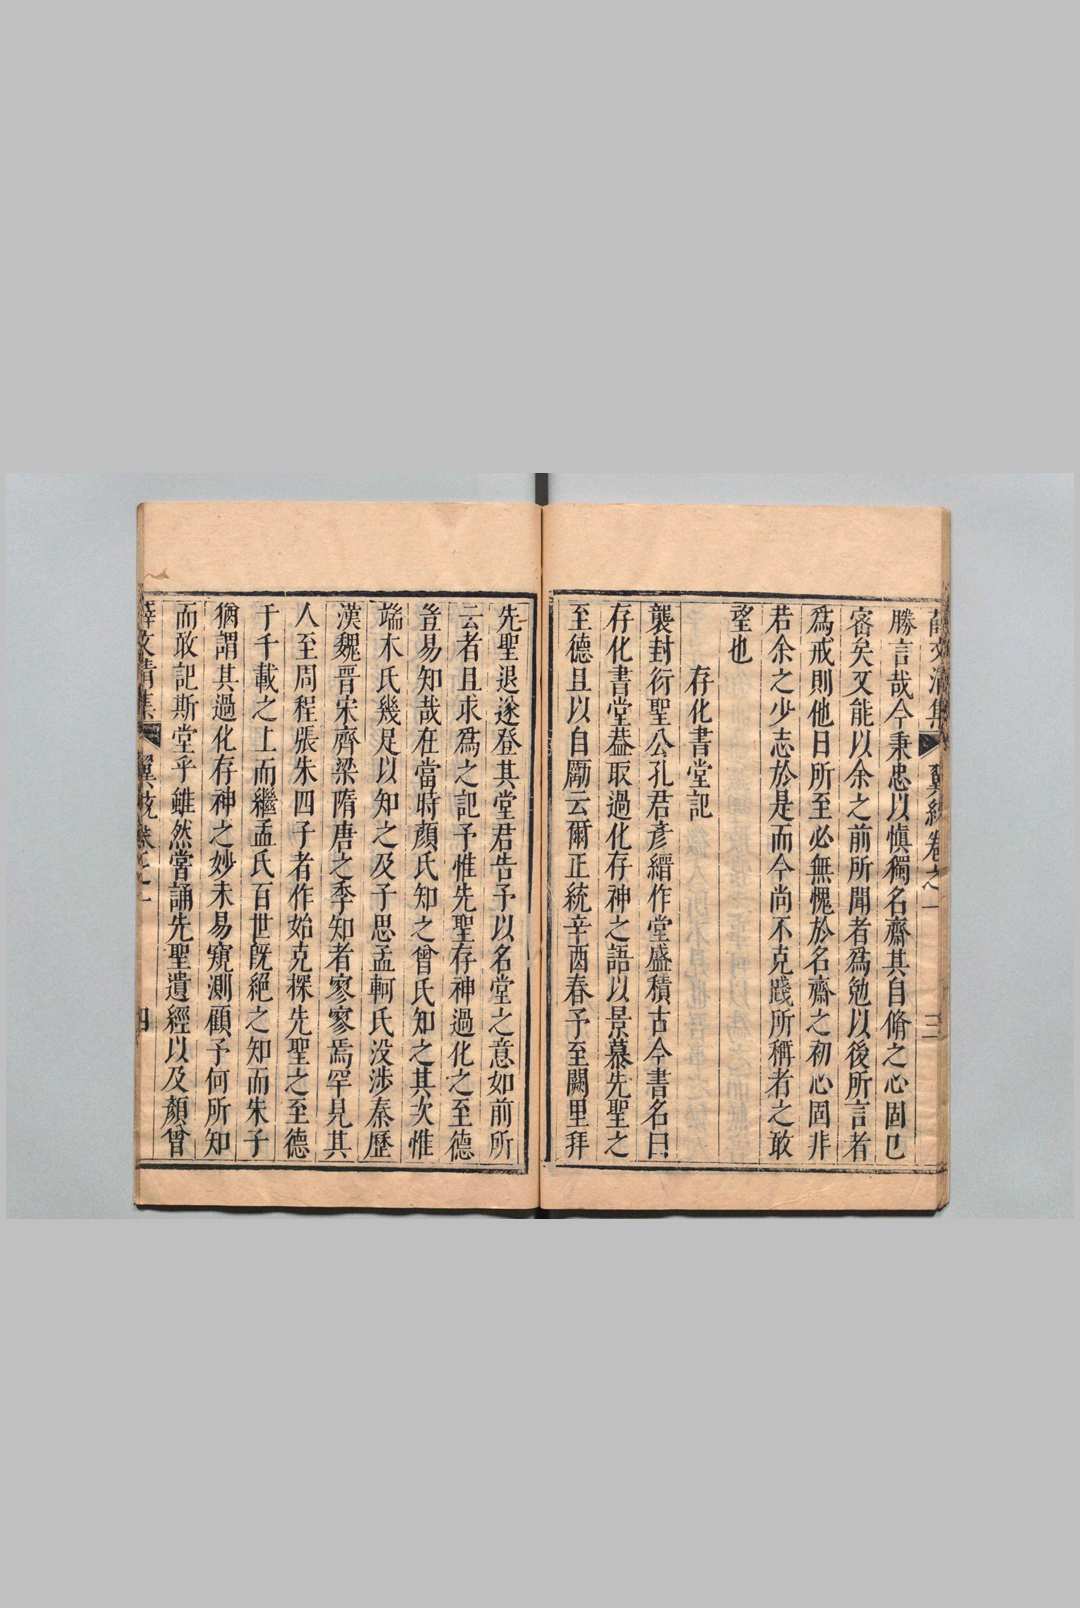 薛文清集 翼經 卷之一 三
勝言哉今秉忠以愼獨名齋其自脩之心固已
密矣又能以余之前所聞者爲勉以後所言者
爲戒則他日所至必無愧於名齋之初心固非
若余之少志於是而今尚不克踐所稱者之敢
望也
存化書堂記
襲封衍聖公孔君彥縉作堂盛積古今書名曰
存化書堂葢取過化存神之語以景慕先聖之
至德且以自勵云爾正統辛酉春予至闕里拜
先聖退遂登其堂君告予以名堂之意如前所
云者且求爲之記予惟先聖存神過化之至德
豈易知哉在當時顏氏知之曾氏知之其次惟
端木氏幾足以知之及子思孟軻氏没涉秦歷
漢魏晋宋齊梁隋唐之季知者寥寥焉罕見其
人至周程張朱四子者作始克探先聖之至德
于千載之上而繼孟氏百世旣絕之知而朱子
猶謂其過化存神之妙未易窺測顧予何所知
而敢記斯堂乎雖然嘗誦先聖遺經以及顏曾
薛文清集 翼經 卷之一 四